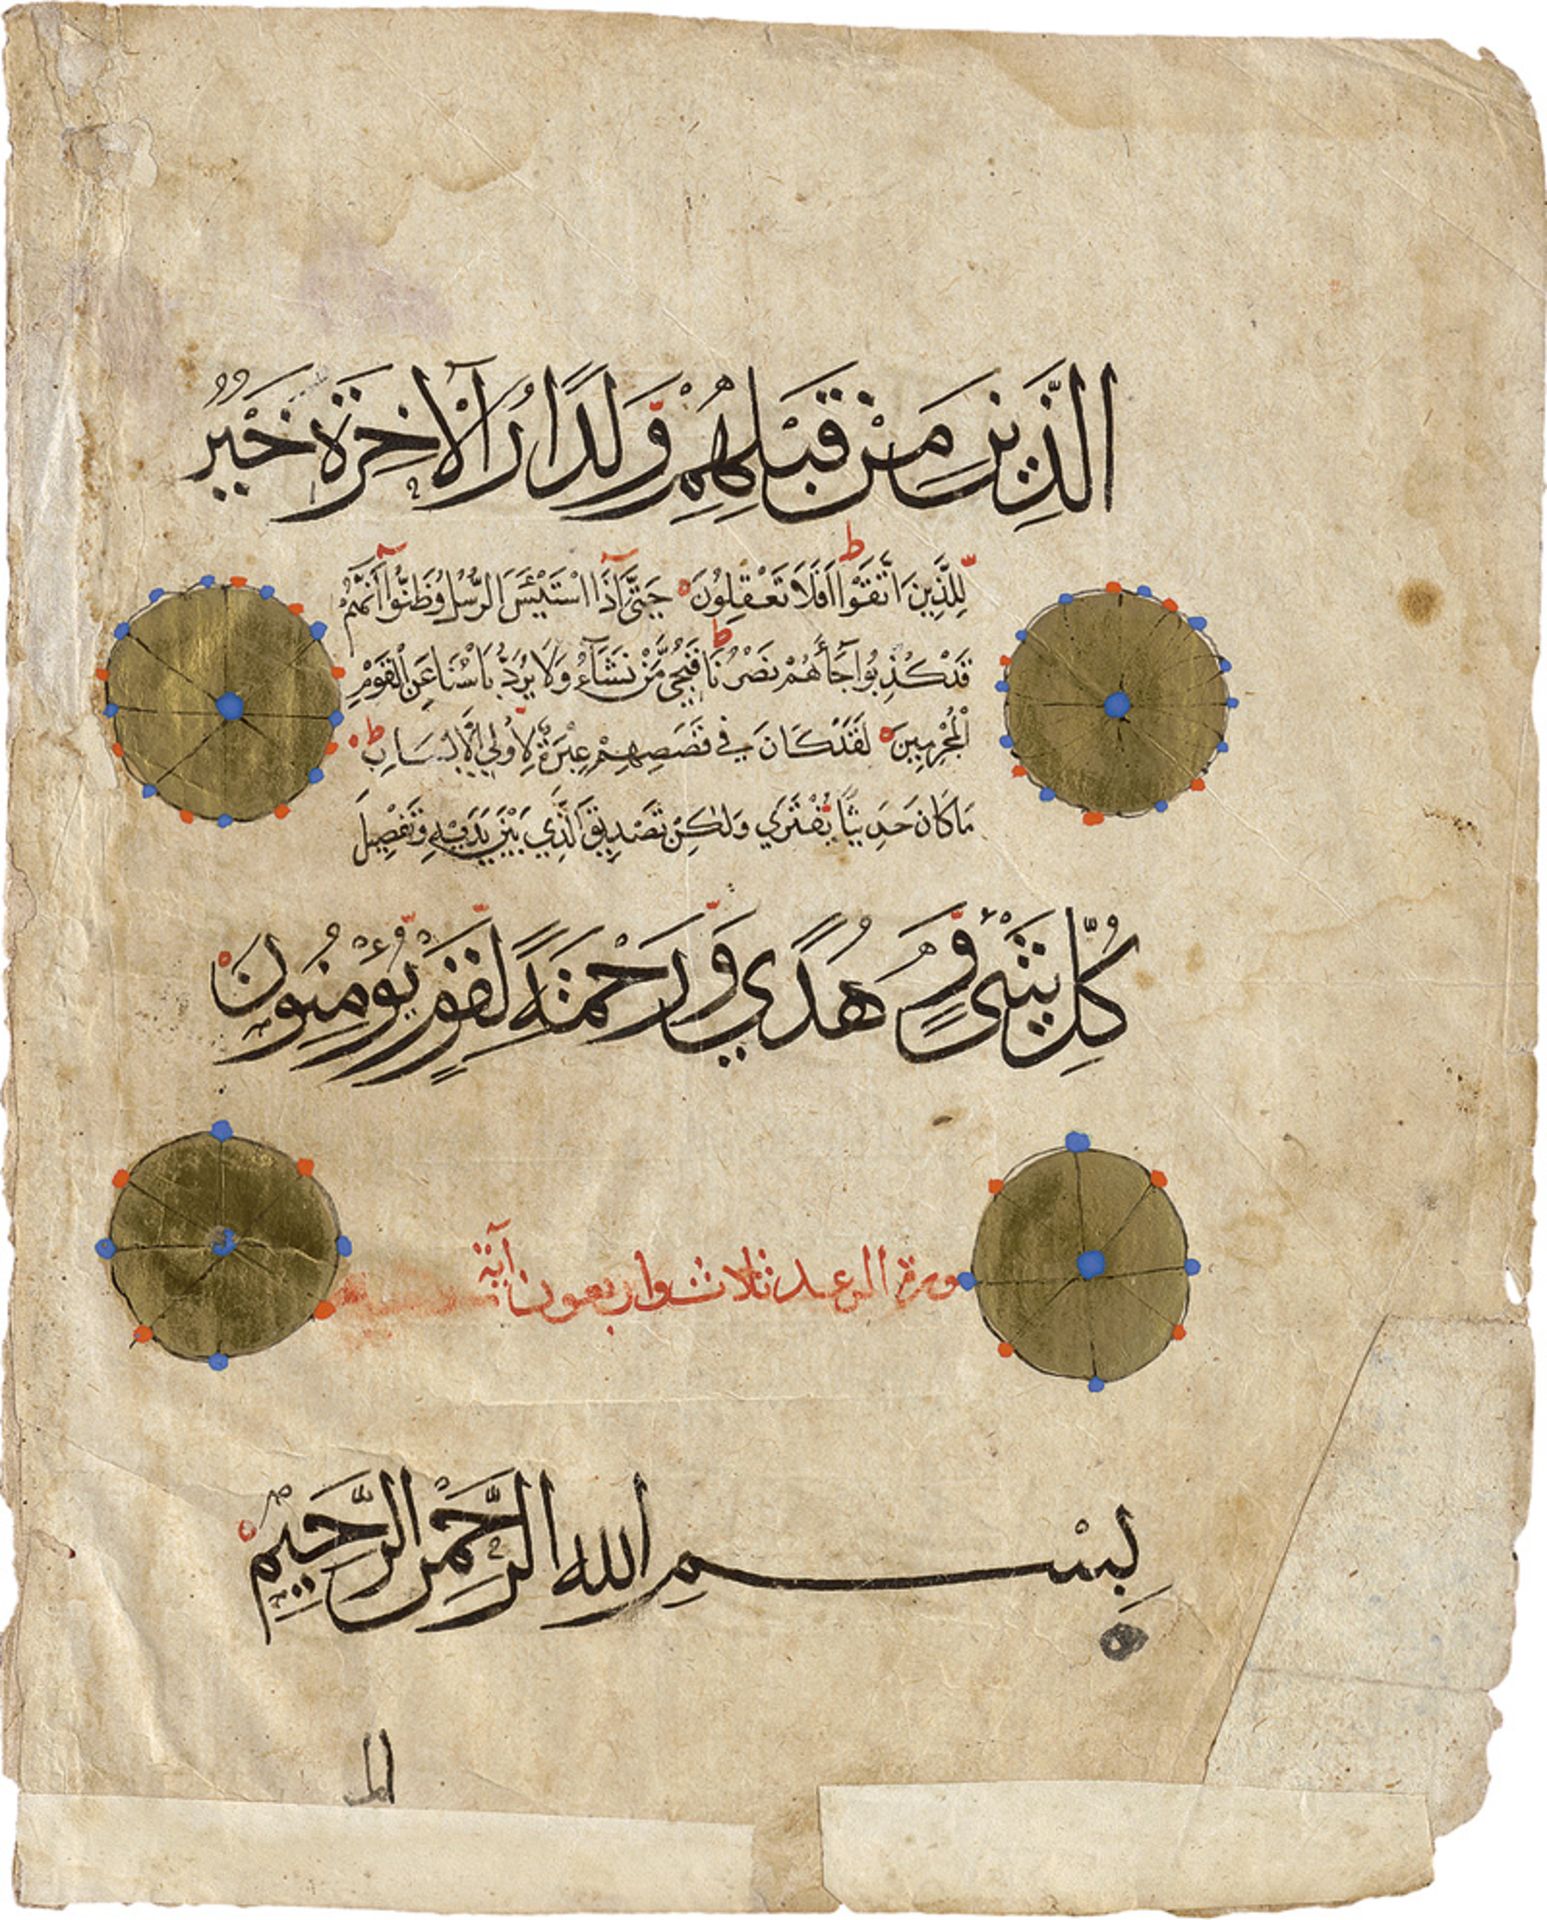 الَّذِينَ مِنْ قَبْلِهِمْ وَلَدَارُ الْآخِرَةِ خَيْرٌ
لِلَّذِينَ اتَّقَوْا أَفَلَا تَعْقِلُونَ حَتَّى إِذَا اسْتَيْئَسَ الرُّسُلُ وَظَنُّوا أَنَّهُمْ
قَدْ كُذِبُوا جَاءَهُمْ نَصْرُنَا فَنُجِّيَ مَنْ نَشَاءُ وَلَا يُرَدُّ بَأْسُنَا عَنِ الْقَوْمِ
الْمُجْرِمِينَ لَقَدْ كَانَ فِي قَصَصِهِمْ عِبْرَةٌ لِأُولِي الْأَلْبَابِ
مَا كَانَ حَدِيثًا يُفْتَرَى وَلَكِنْ تَصْدِيقَ الَّذِي بَيْنَ يَدَيْهِ وَتَفْصِيلَ
كُلِّ شَيْءٍ وَهُدًى وَرَحْمَةً لِقَوْمٍ يُؤْمِنُونَ
سورة الرعد ثلاث واربعون آية
بِسْمِ اللهِ الرَّحْمٰنِ الرَّحِيمِ
المر